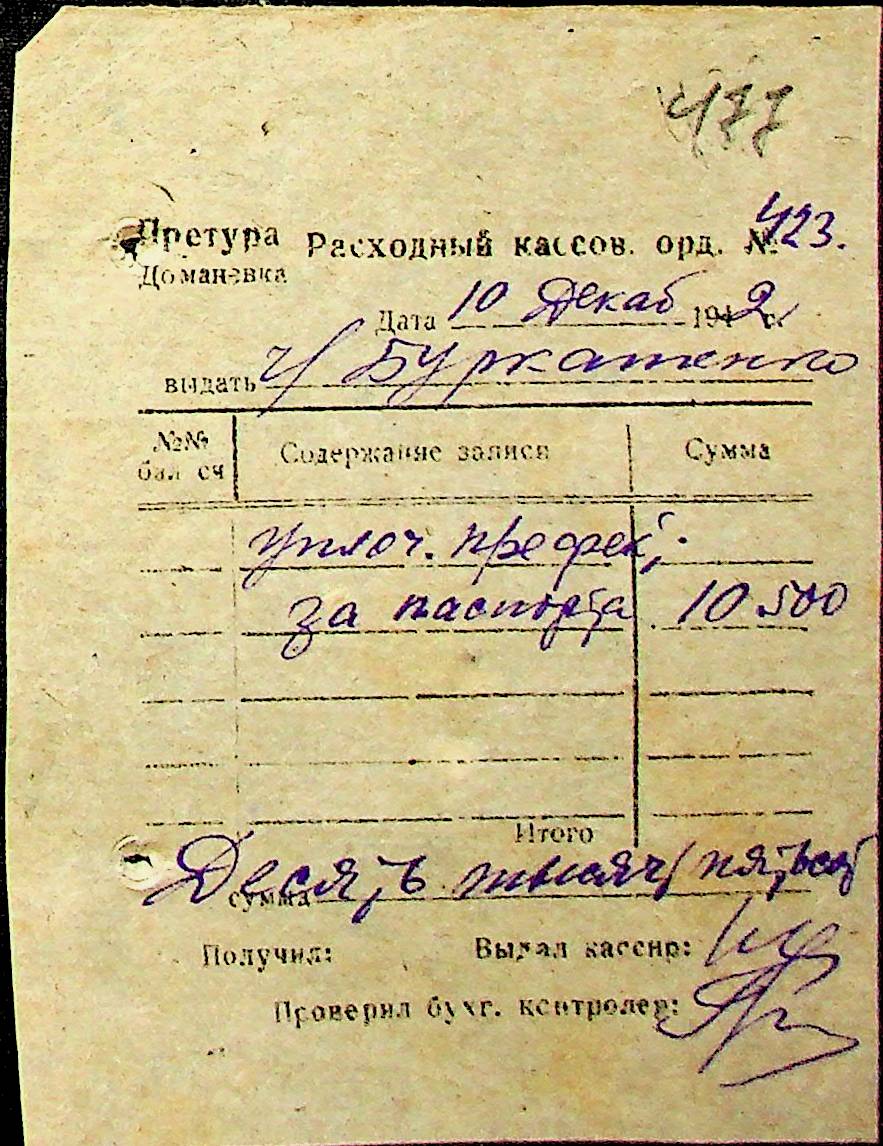 477
Претура Расходный кассов. орд. № 423.
Доманевка
Дата 10 Декаб 1942 г.
выдать ч/ Буркатенко
№№ бал сч Содержание записи Сумма
уплоч. префек,
за паспорта 10.500
Итого
сумма Десять тысяч пятьсот
Получил: Выдал кассир:
Проверил бухг. контролер: